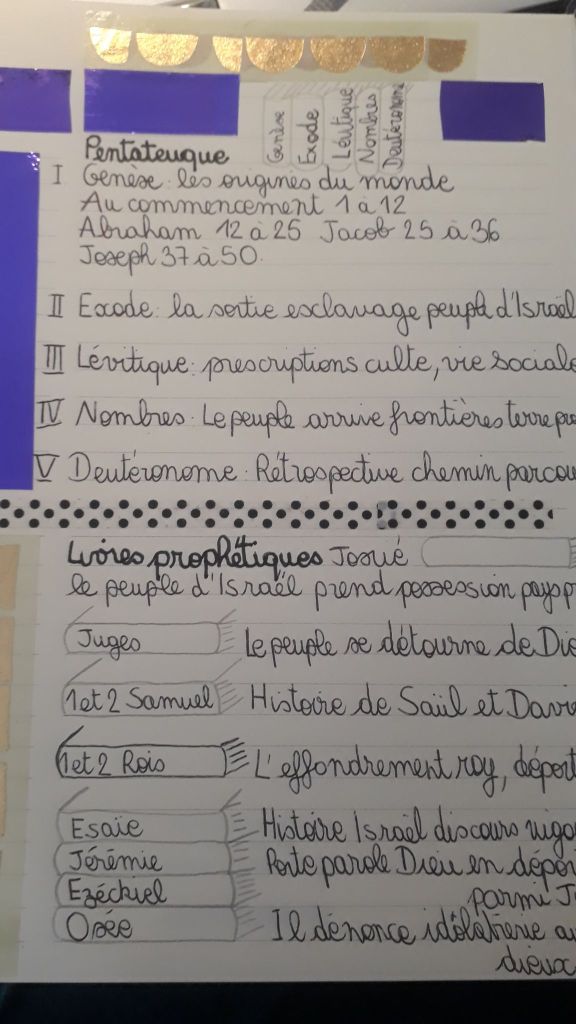 Genèse
Exode
Lévitique
Nombres
Deutéronome
Pentateuque
I Genèse : les origines du monde
Au commencement 1 à 12
Abraham 12 à 25 Jacob 25 à 36
Joseph 37 à 50.
II Exode : la sortie esclavage peuple d'Israël
III Lévitique : prescriptions culte, vie sociale
IV Nombres : Le peuple arrive frontières terre
V Deutéronome : Rétrospective chemin parcou
Livres prophétiques Josué
le peuple d'Israël prend possession pays p
Juges Le peuple se détourne de Die
1 et 2 Samuel Histoire de Saül et Davi
1 et 2 Rois L'effondrement roy, déport
Esaïe Histoire Israël discours vigo
Jérémie Porte parole Dieu en dépor
Ezéckiel parmi J
Osée Il dénonce idôlatrerie au
dieux